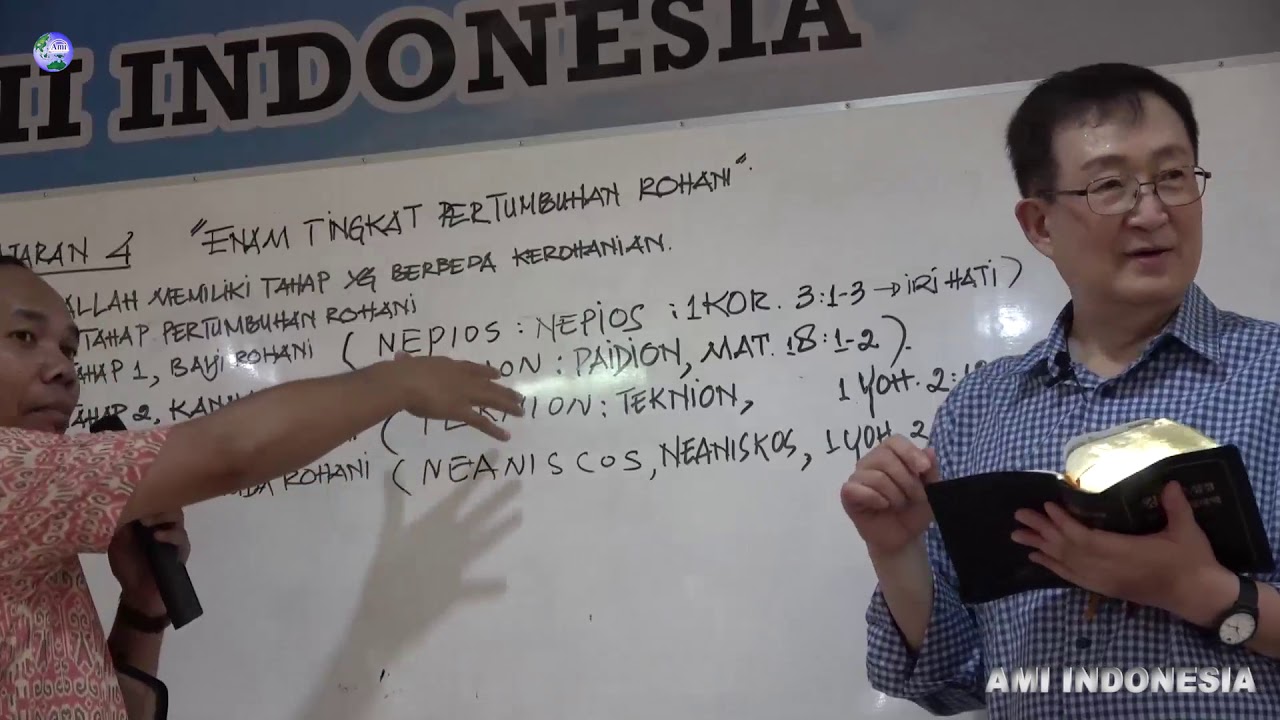 Ami
II INDONESIA
AJARAN 4 "ENAM TINGKAT PERTUMBUHAN ROHANI".
ALLAH MEMILIKI TAHAP YG BERBEDA KEROHANIAN.
TAHAP PERTUMBUHAN ROHANI
TAHAP 1, BAYI ROHANI (NEPIOS : NEPIOS : 1 KOR. 3:1-3 → IRI HATI)
TAHAP 2, ION : PAIDION, MAT. 18:1-2).
( TEKNION : TEKNION, 1 YOH. 2:
DA ROHANI (NEANISCOS, NEANISKOS, 1 YOH. 2
AMI INDONESIA